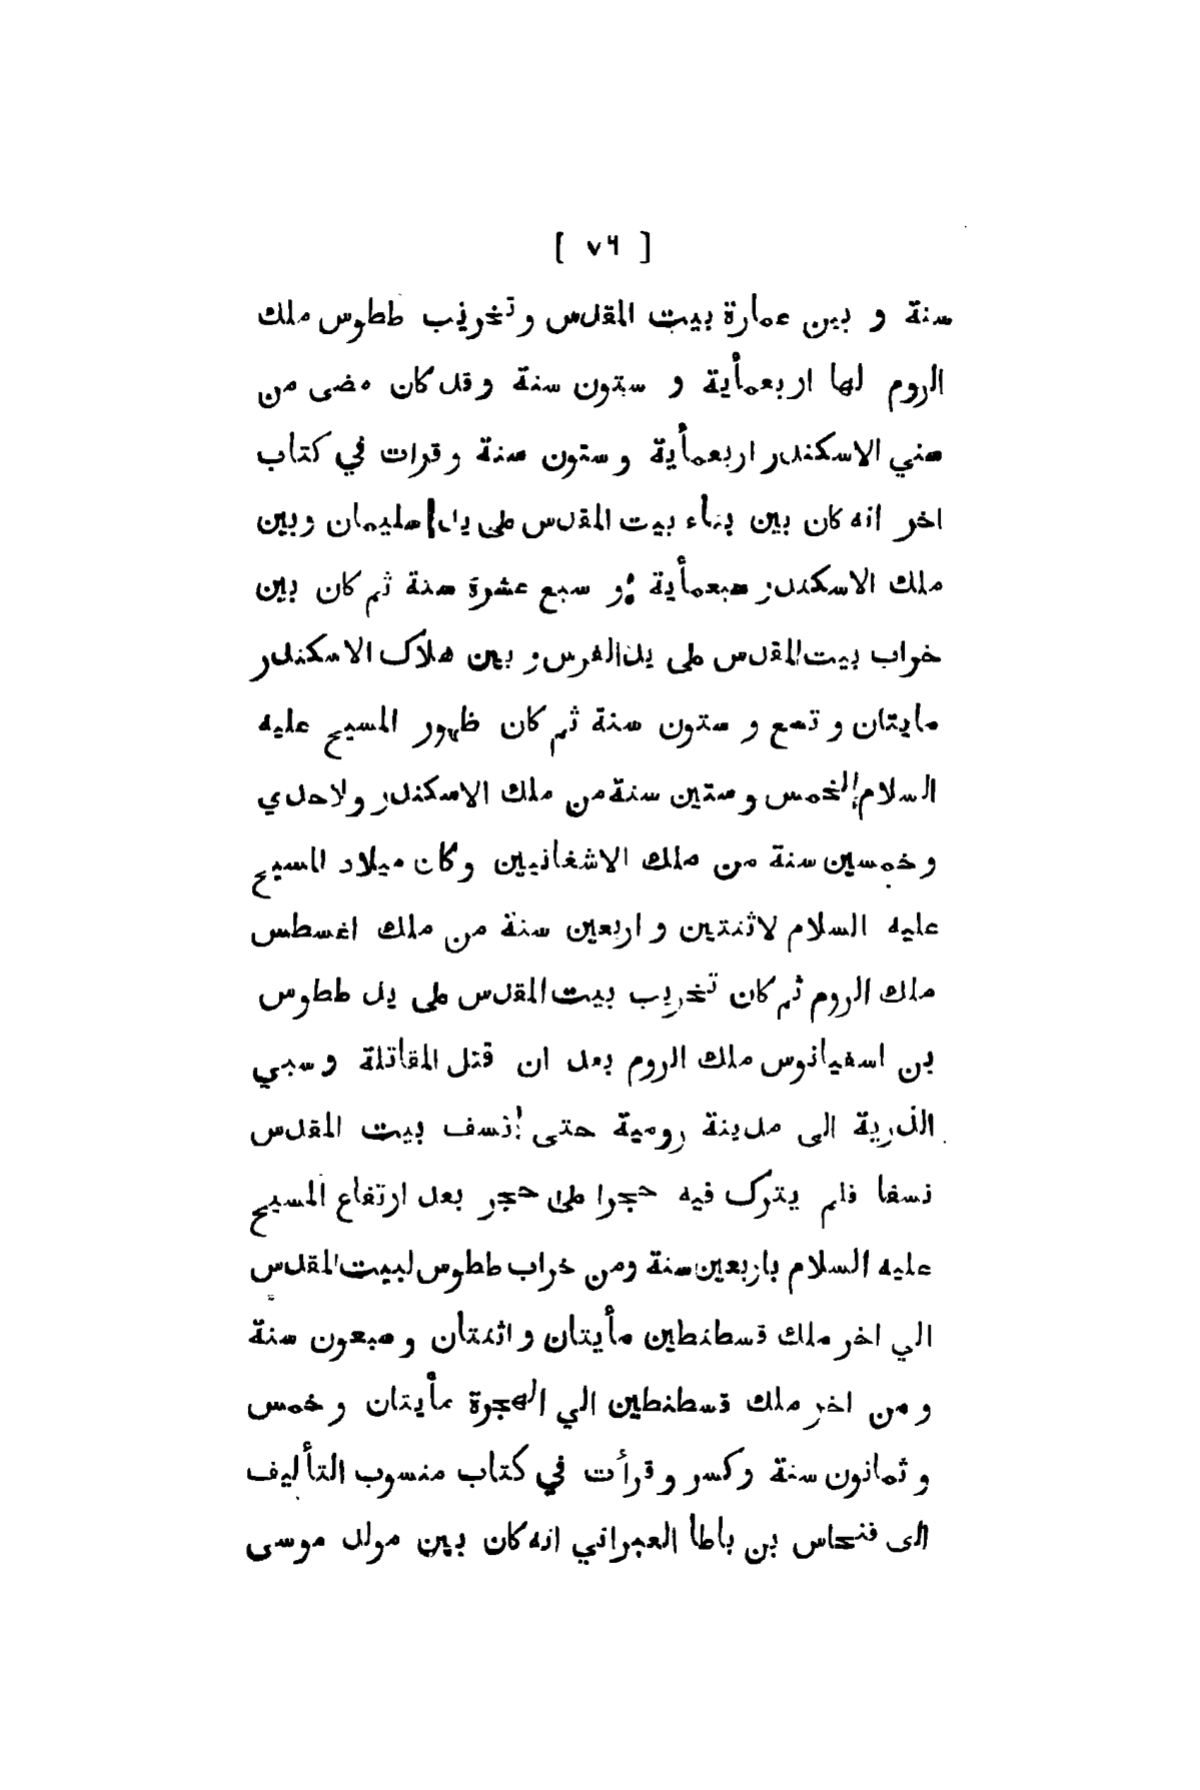 [ ٧٦ ]
سنة و بين عمارة بيت المقدس و تخريب ططوس ملك
الروم لها اربعمأية و ستون سنة و قد كان مضى من
سني الاسكندر اربعمأية و ستون سنة و قرات في كتاب
اخر انه كان بين بناء بيت المقدس على يد سليمان و بين
ملك الاسكندر سبعمأية و سبع عشرة سنة ثم كان بين
خراب بيت المقدس على يد الفرس و بين هلاك الاسكندر
مايتان و تسع و ستون سنة ثم كان ظهور المسيح عليه
السلام لخمس و ستين سنة من ملك الاسكندر و لاحدي
و خمسين سنة من ملك الاشغانيين و كان ميلاد المسيح
عليه السلام لاثنتين و اربعين سنة من ملك اغسطس
ملك الروم ثم كان تخريب بيت المقدس على يد ططوس
بن اسفيانوس ملك الروم بعد ان قتل المقاتلة و سبي
الذرية الى مدينة رومية حتى نسف بيت المقدس
نسفا فلم يترك فيه حجرا على حجر بعد ارتفاع المسيح
عليه السلام باربعين سنة ومن خراب ططوس لبيت المقدس
الي اخر ملك قسطنطين مأيتان و اثنتان و سبعون سنة
و من اخر ملك قسطنطين الي الهجرة مأيتان و خمس
و ثمانون سنة و كسر و قرأت في كتاب منسوب التأليف
الى فنحاس بن باطا العبراني انه كان بين مولد موسى